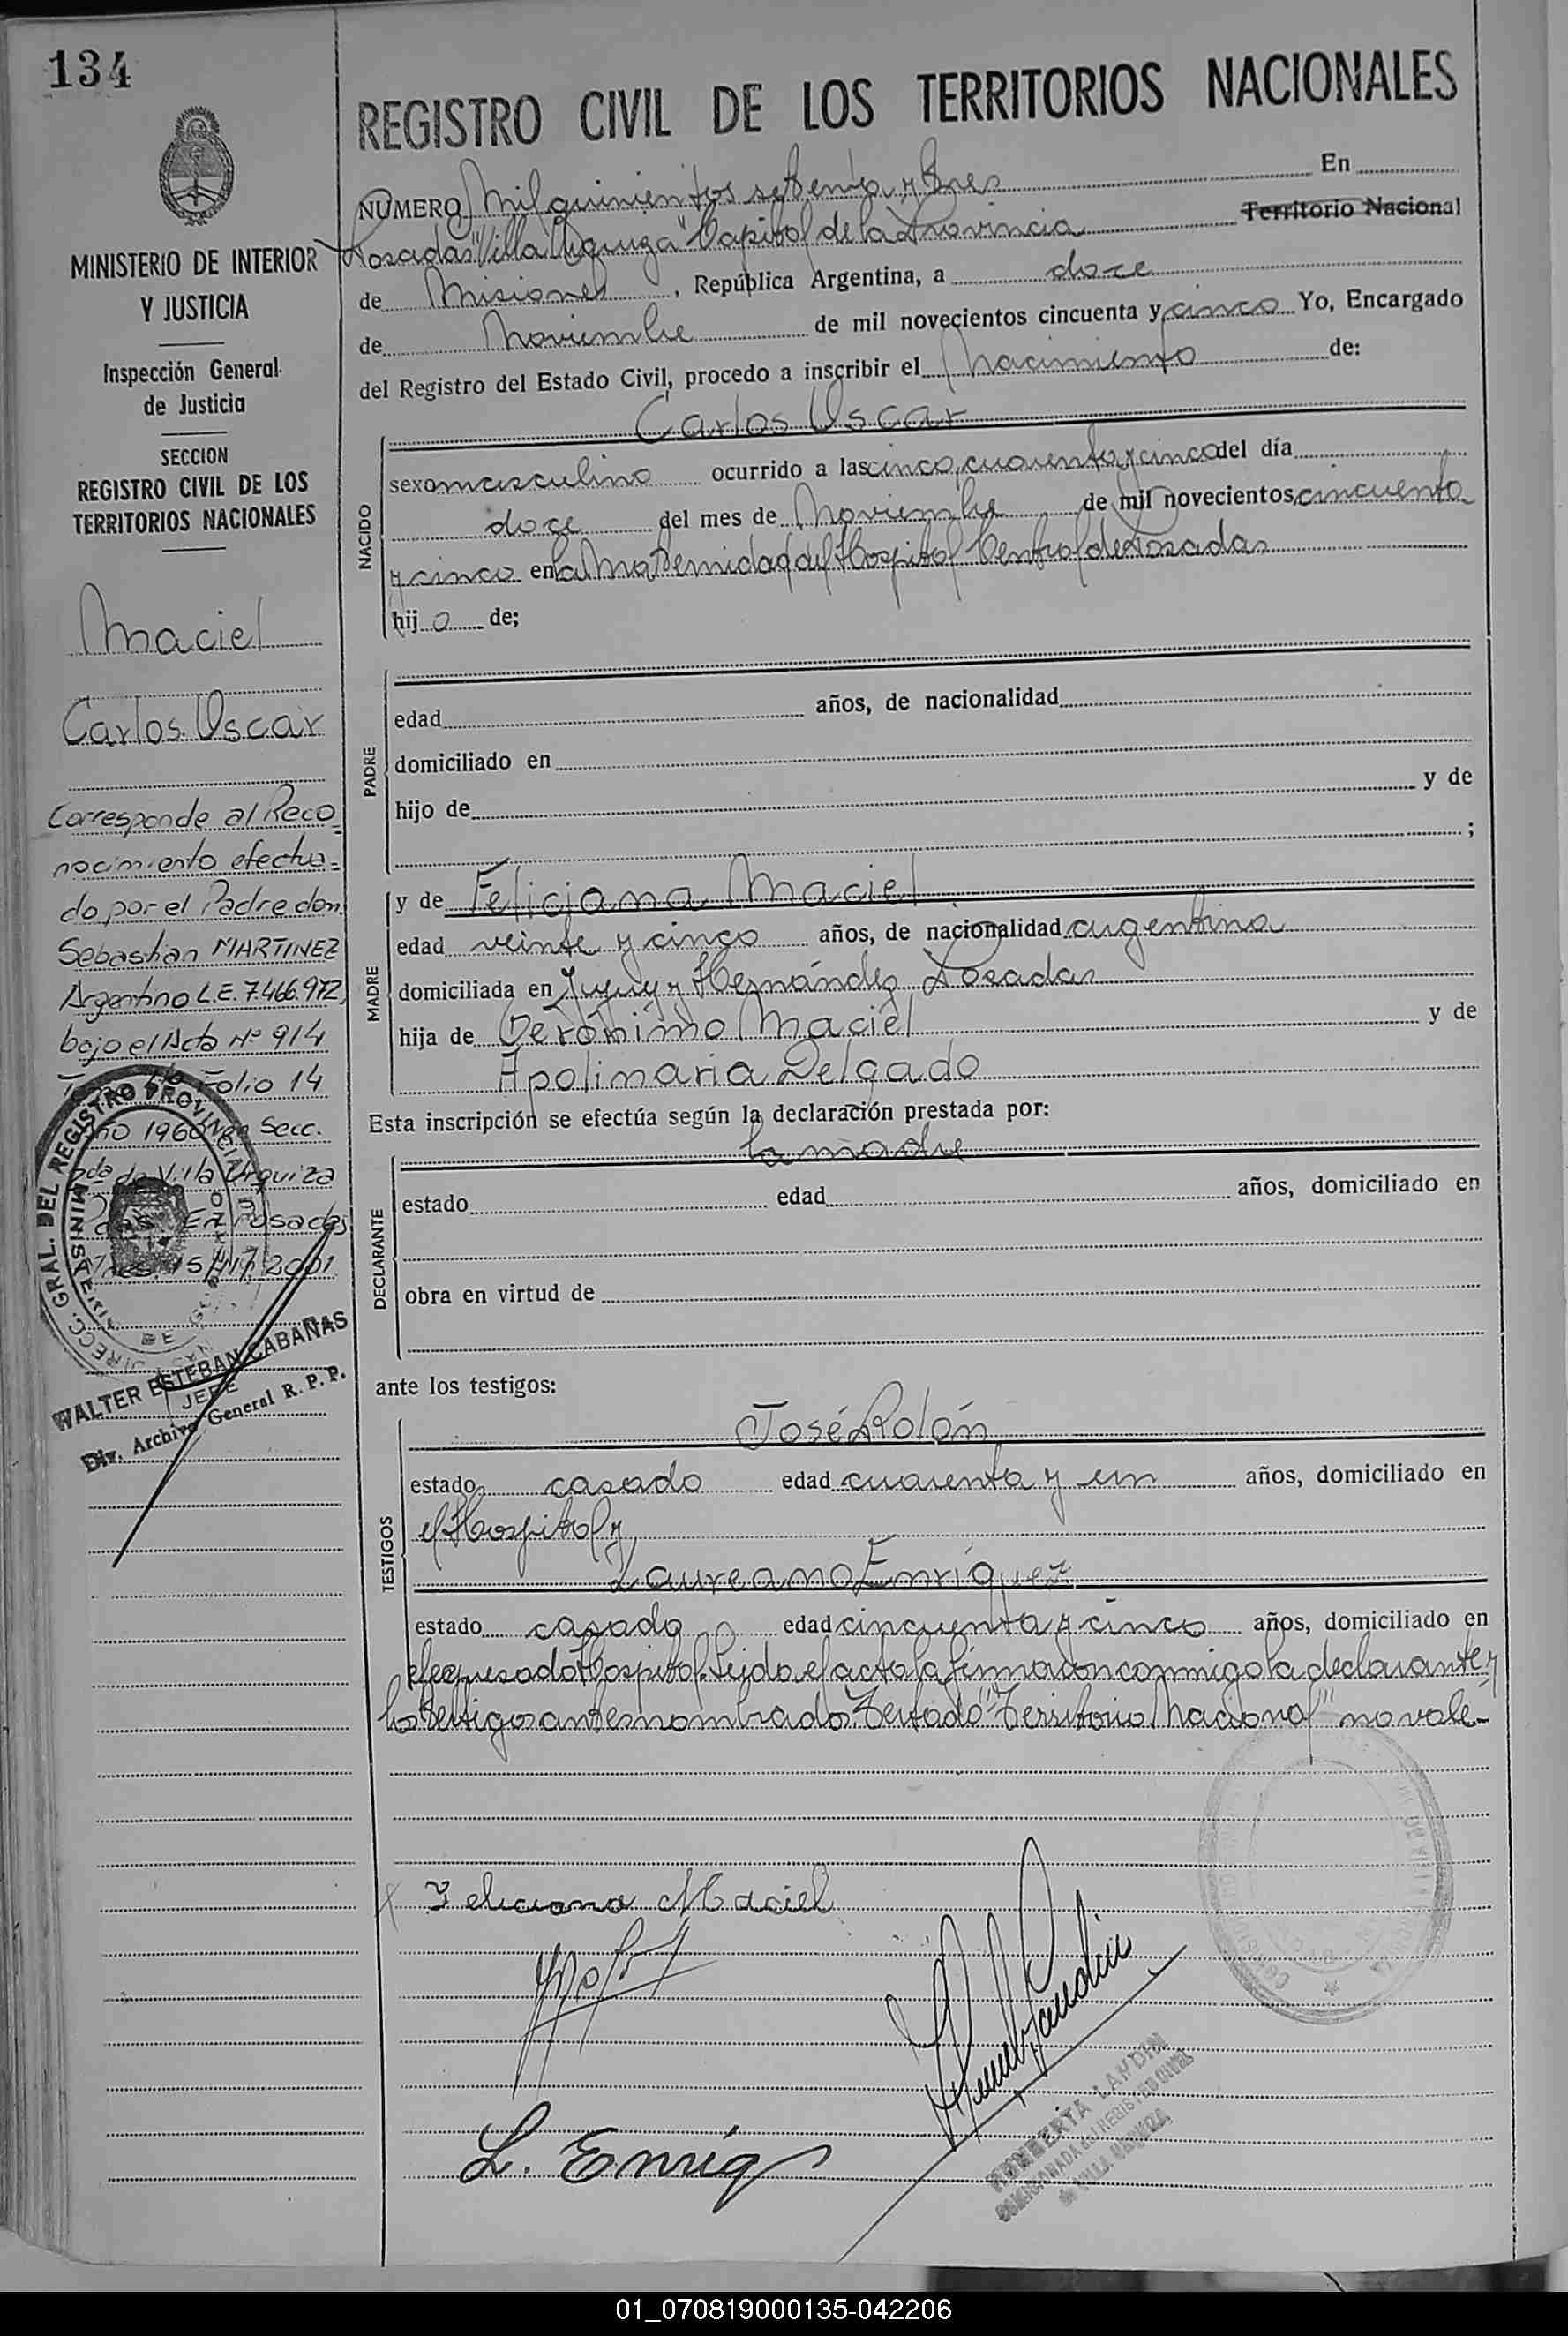 134
REGISTRO CIVIL DE LOS TERRITORIOS NACIONALES
NUMERO Mil quinientos setenta y tres En
Posadas "Villa Urquiza" Capital de la Provincia Territorio Nacional
de Misiones, República Argentina, a doce
de Noviembre de mil novecientos cincuenta y cinco Yo, Encargado
del Registro del Estado Civil, procedo a inscribir el Nacimiento de:
MINISTERIO DE INTERIOR
Y JUSTICIA
Inspección General
de Justicia
SECCION
REGISTRO CIVIL DE LOS
TERRITORIOS NACIONALES
Maciel
Carlos Oscar
Corresponde al Reco-
nocimiento efectua-
do por el Padre don
Sebastian MARTINEZ
Argentino L.E. 7.466.972
bajo el Acta Nº 914
Folio 14
Año 1960 Secc.
2da de Villa Urquiza
En Posadas
2001
DIRECC. GRAL. DEL REGISTRO PROVINCIAL
MINISTERIO DE GOBIERNO
WALTER ESTEBAN CABAÑAS
JEFE
Div. Archivo General R. P. P.
NACIDO
Carlos Oscar
sexo masculino ocurrido a las cinco, cuarenta y cinco del día
doce del mes de Noviembre de mil novecientos cincuenta
y cinco en la Maternidad del Hospital Central de Posadas
hijo de;
PADRE
edad años, de nacionalidad
domiciliado en
hijo de y de
;
MADRE
y de Feliciana Maciel
edad veinte y cinco años, de nacionalidad argentina
domiciliada en Jujuy y Hernández Posadas
hija de Gerónimo Maciel y de
Apolinaria Delgado
Esta inscripción se efectúa según la declaración prestada por:
DECLARANTE
la madre
estado edad años, domiciliado en
obra en virtud de
ante los testigos:
TESTIGOS
José Rolón
estado casado edad cuarenta y un años, domiciliado en
el Hospital y
Laureano Enriquez
estado casado edad cincuenta y cinco años, domiciliado en
el expresado Hospital. Leida el acta la firmaron conmigo la declarante y
los testigos antes nombrados. Testado "Territorio Nacional" no vale-
Feliciana Maciel
L. Enriq
HUMBERTA LANDIN
ENCARGADA del REGISTRO CIVIL
de VILLA URQUIZA
01_070819000135-042206